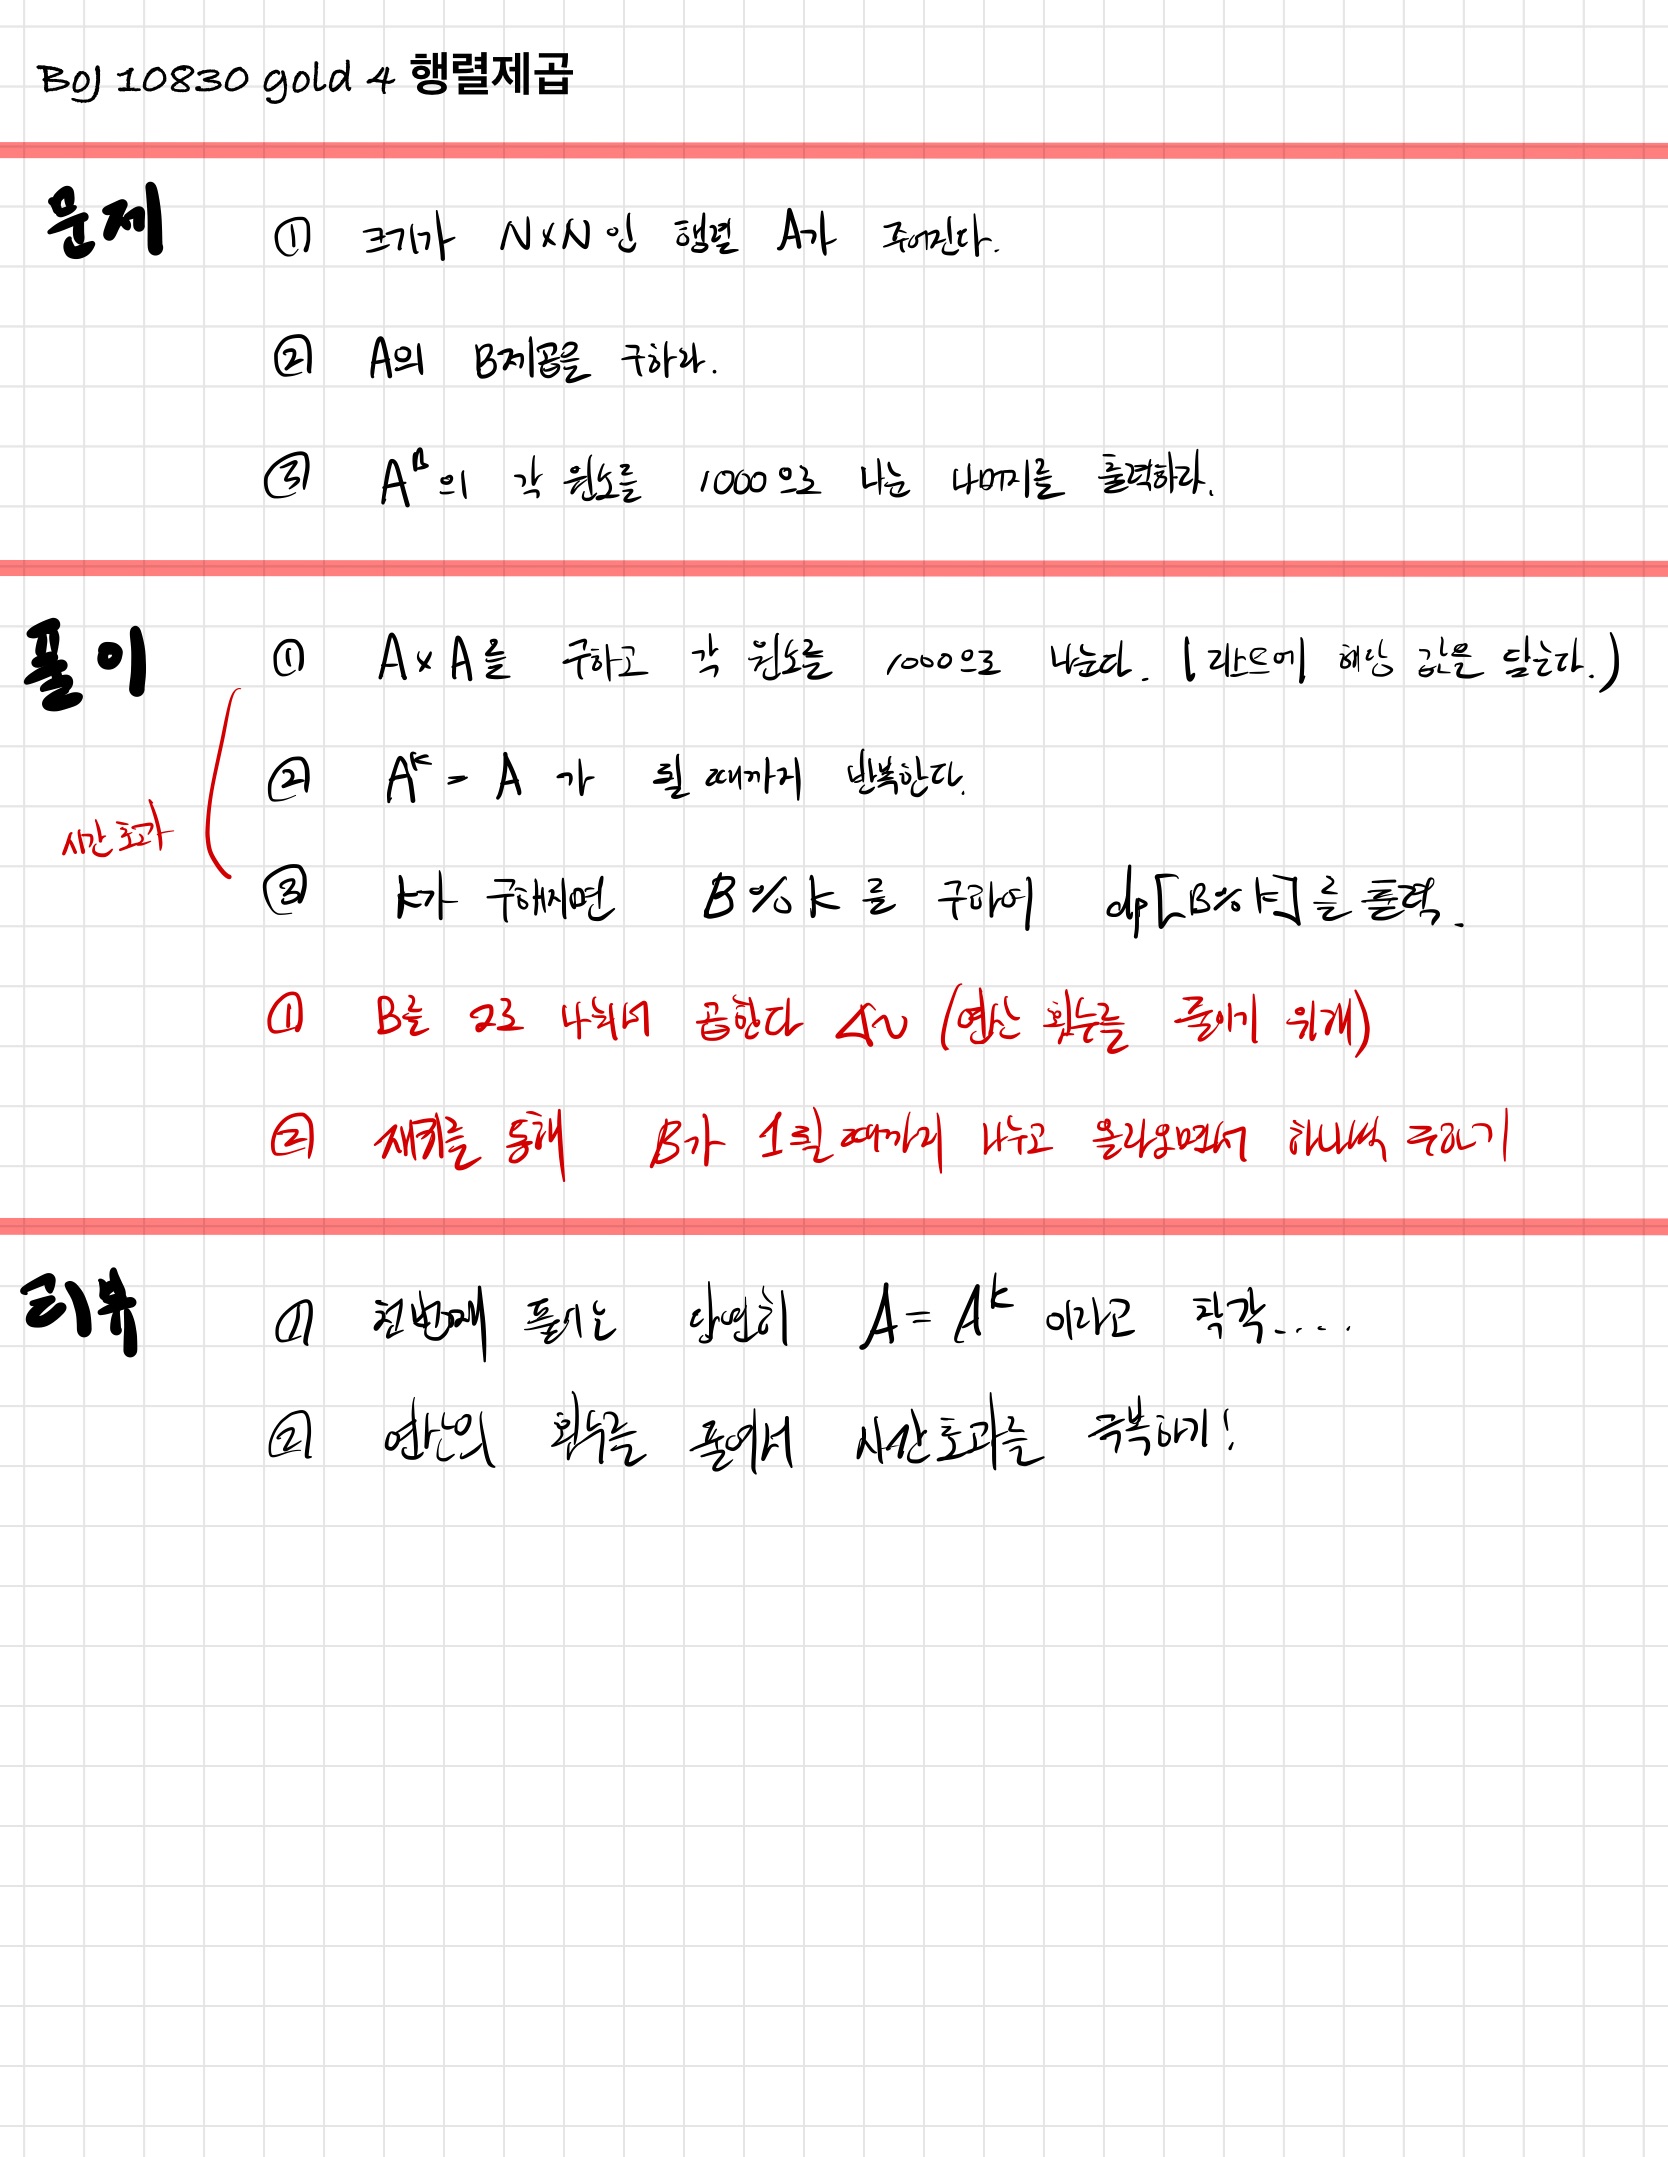 BOJ 10830 gold 4 행렬제곱
문제
① 크기가 N×N인 행렬 A가 주어진다.
② A의 B제곱을 구하라.
③ A^B의 각 원소를 1000으로 나눈 나머지를 출력하라.
풀이
① A×A를 구하고 각 원소를 1000으로 나눈다. (리스트에 해당 값을 담는다.)
② A^K = A 가 될 때까지 반복한다.
시간초과
③ K가 구해지면 B%K를 구하여 dp[B%K]를 출력.
① B를 2로 나눠서 곱한다 (연산 횟수를 줄이기 위해)
② 재귀를 통해 B가 1될 때까지 나누고 올라오면서 하나씩 구하기
리뷰
① 첫번째 풀이는 당연히 A = A^K 이라고 착각....
② 연산의 횟수를 줄여서 시간초과를 극복하기!